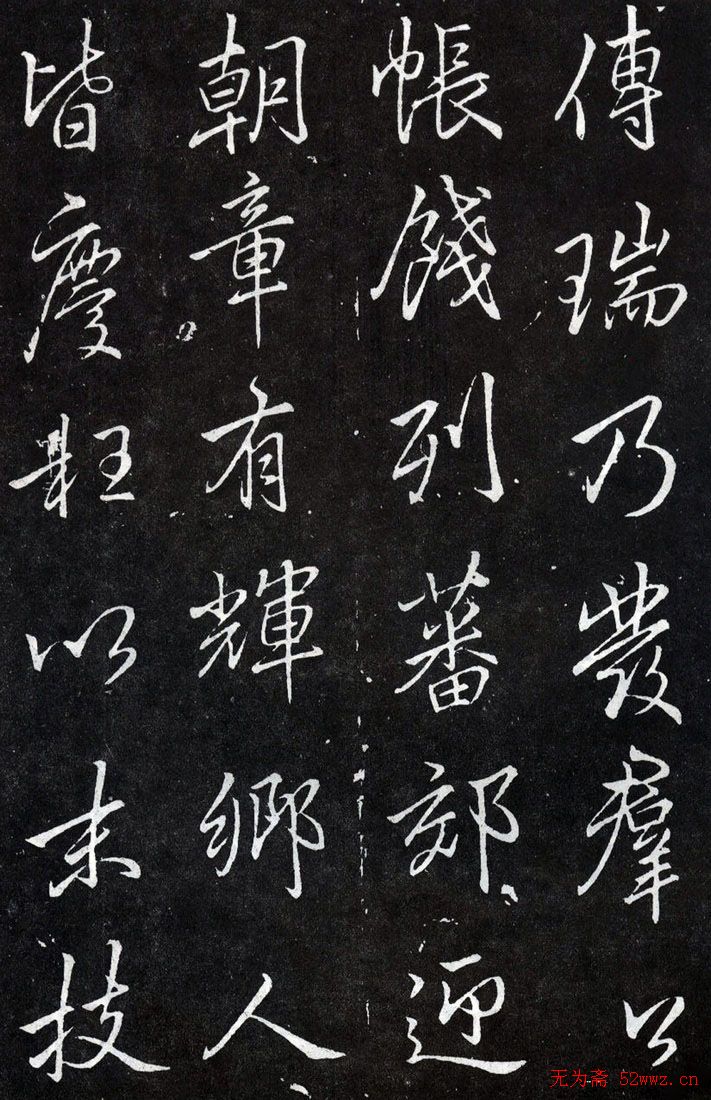 傳瑞乃發羣公
帳餞列蕃郊迎
朝章有輝鄉人
皆慶㹵以末技
无为斋 52wwz.cn